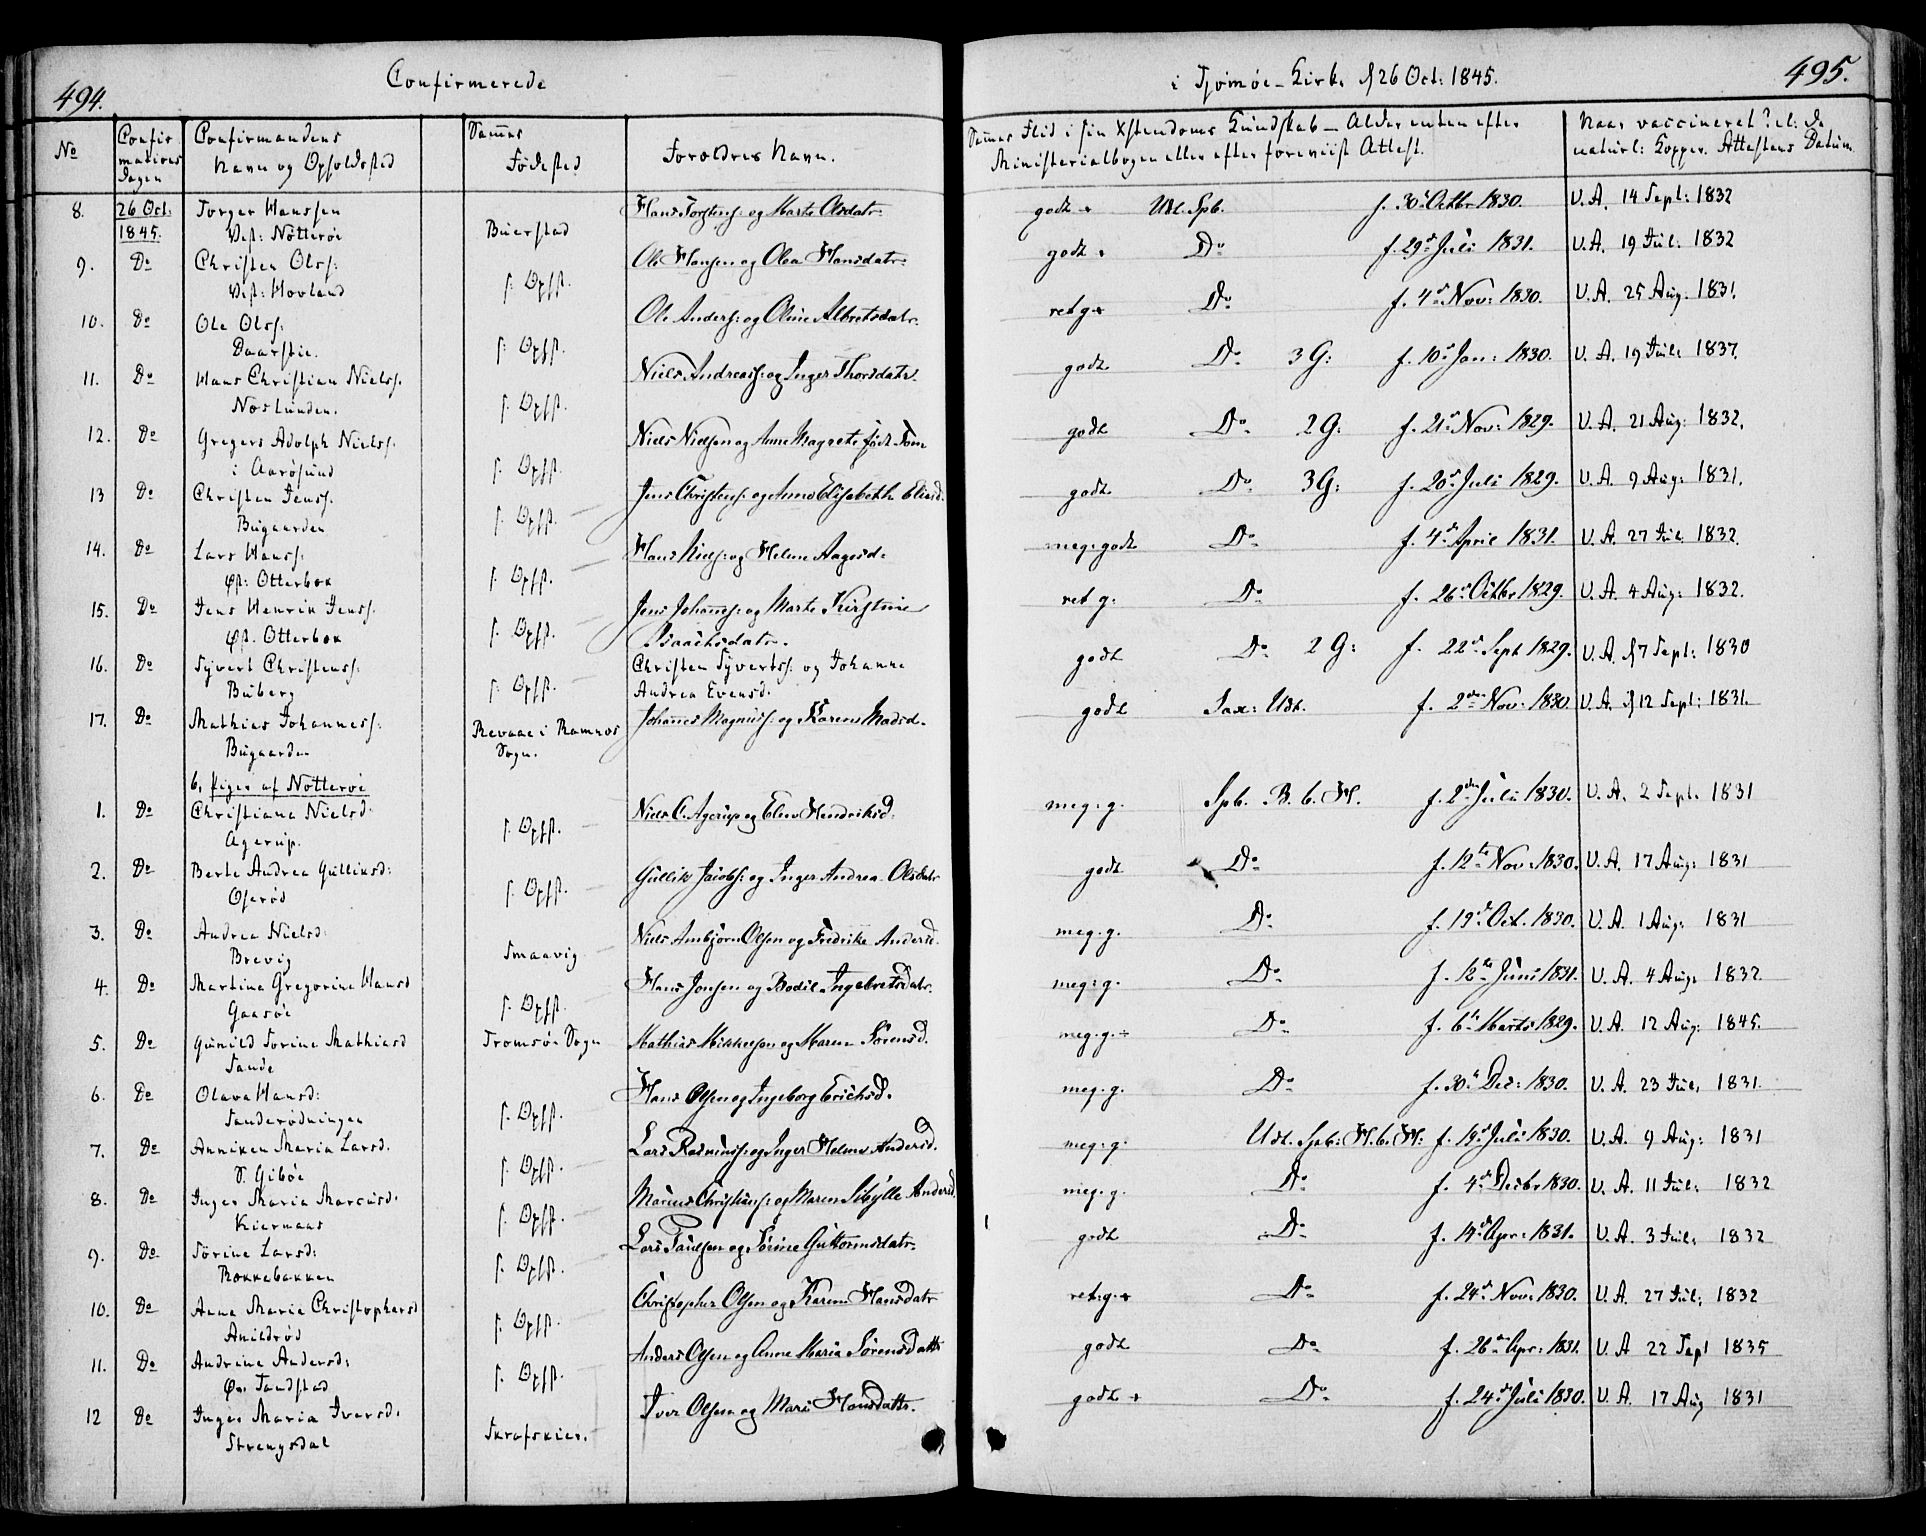 494.
Confirmerede
i Tjømøe-Kirke d 26 Oct: 1845.
495.
No
Confir
mations
Dagen
Confirmandens
Navn og Opholdsted
Sammes
Fødested
Forældres Navn.
Sammes Flid i sin Xstendoms Kundskab - Alder enten efter
Ministerialbogen eller efter foreviist Attest.
Naar vaccineret? el: de
naturl: Kopper. Attestens Datum.
8. 26 Oct: 1845. Torger Hanssen
Vest: Nøtterøe
Buerstad
Hans Torgersˢ: og Marte Olsdatr:
godt + Udt. Spb. f. 30 Octbr 1830. V.A. 14 Sept: 1832
9. Do Christen Olss:
Vest: Hovland
s. Ophst.
Ole Hansen og Olea Hansdatr:
godt + Do f. 29 Juli 1831. V.A. 19 Jul: 1832
10. Do Ole Olss:
Daarstie.
s. Ophst.
Ole Anderss: og Oline Albretsdatr.
ret g + Do f. 4 Nov: 1830. V.A. 25 Aug. 1831.
11. Do Hans Christian Nielss.
Næslunden.
s. Ophst.
Niels Andreass: og Inger Thorsdatr.
godt. Do 3 G: f. 10 Jan: 1830. V.A. 19 Jul: 1837.
12. Do Gregers Adolph Nielss.
i Aarøsund
s. Ophst.
Niels Nielsen og Anne Magrete født Fom
godt Do 2 G: f. 21 Nov: 1829. V.A. 21 Aug: 1832.
13 Do Christen Jenss.
Bugaarden
s. Ophst.
Jens Christenss: og Anne Elisabeth Eliasd.
godt. Do 3 G: f. 20 Juli 1829. V.A. 9 Aug: 1831.
14. Do Lars Hanss.
Øst: Otterbek
s. Ophst.
Hans Niels: og Helene Aagesd:
meg: godt Do f. 4 April 1831. V.A. 27 Jul. 1832.
15. Do Jens Henrik Jenss.
Øst. Otterbek
s. Ophst.
Jens Johanness: og Marte Kirstine
Isaachsdatr.
ret g: Do f. 26 Octbr 1829. V.A. 4 Aug: 1832.
16. Do Syvert Christenss.
Buberg
s. Ophst.
Christen Syvertss. og Johanne
Andrea Evensd.
godt Do 2 G: f. 22 Sept 1829. V.A. d 7 Sept: 1830
17. Do Mathias Johanness:
Bugaarden
Revaae i Ramnes
Sogn.
Johannes Magnuss: og Karen Madsd.
godt Sax: Udt. f. 2 Nov: 1830. V.A. d 12 Sept: 1831.
b, Piger af Nøtterøe
1. Do Christiana Nielsd.
Agerup.
s. Ophst.
Niels C. Agerup og Elen Hendriksd.
meg: g. Spb. B. b. H. f. 2 Juli 1830. V.A. 2 Sept. 1831
2. Do Berte Andrea Gulliksd:
Oserød
s. Ophst.
Gullik Jacobs: og Inger Andrea Olsdatr
godt Do f. 12 Nov: 1830. V.A. 17 Aug: 1831
3. Do Andrea Nielsd:
Brevig
Smaavig
Niels Ambjørn Olsen og Fredrike Andersd.
meg. g. Do f. 19 Oct. 1830. V.A. 1 Aug: 1831
4. Do Martine Gregorine Hansd
Gaasøe
s. Ophst.
Hans Jonsen og Bodil Ingebretsdatr.
meg: g. Do f. 12 Juni 1831. V.A. 4 Aug: 1832.
5. Do Gunild Sorine Mathiasd
Sande
Tromsøe Sogn
Mathias Mikkelsen og Maren Sørensd.
meg. g. ÷ Do f. 6 Marts 1829. V.A. 12 Aug: 1845.
6. Do Olava Hansd:
Sanderødningen
s. Ophst.
Hans Olsen og Ingeborg Erichsd.
meg. g. Do f. 30 Dec: 1830. V.A. 23 Jul, 1831.
7. Do Anniken Maria Larsd.
S. Gibøe
s. Ophst.
Lars Rasmuss: og Inger Helene Andersd.
meg: g. Udt. Spb: H. b. H: f. 19 Juli 1830. V.A. 9 Aug: 1831
8. Do Inger Maria Marcusd.
Kiernaas
s. Ophst.
Marcus Christians: og Maren Sibylle Andersd.
meg. g. Do f. 4 Decbr 1830. V.A. 11 Jul: 1832
9. Do Sørine Larsd:
Bakkebakken
s. Ophst.
Lars Paulsen og Sørine Guttormsdatr.
godt Do f. 14 Apr: 1831. V.A. 3 Jul: 1832
10. Do Anna Maria Christophersd
Anildrød
s. Ophst.
Christopher Olsen og Karen Hansdatr
ret: g. + Do f. 24 Nov: 1830. V.A. 27 Jul: 1832
11. Do Andrine Andersd:
Øv. Sandstad
s. Ophst.
Anders Olsen og Anne Maria Sørensdattr
godt Do f. 26 Apr: 1831. V.A 22 Sept 1835
12 Do Inger Maria Iversd.
Strengsdal
Skrafskier.
Iver Olsen og Mari Hansdattr.
godt + Do f. 24 Juli 1830. V.A. 17 Aug 1831